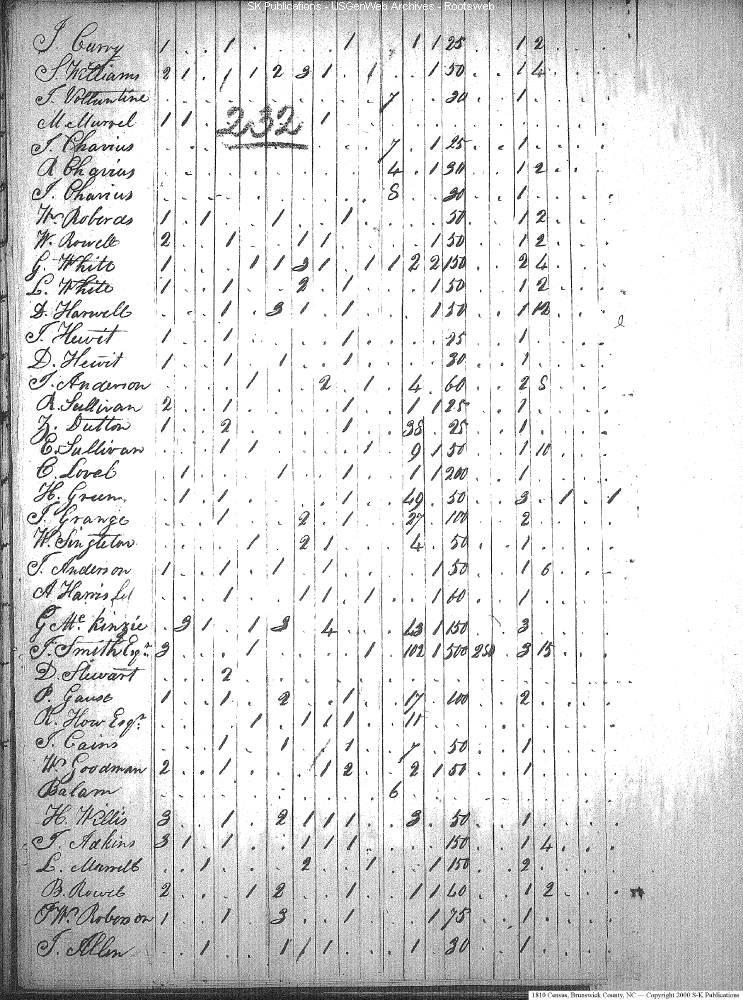 SK Publications - USGenWeb Archives - Rootsweb
J. Curry 1 . . 1 . . . . 1 . . 1 1 25 . . 1 2
S. Williams 2 1 . 1 1 2 3 1 . 1 . . 1 50 . . 1 4
J. Voltuntine 7 . 30 . . 1
M. Murvel 1 1 . . . . . 1
232
J. Charius 7 . 1 25 . . 1
A. Charius 4 . 1 30 . . 1 2
J. Charius 8 . . 30 . . 1
W. Roberds 1 . 1 . . 1 . . 1 . . . . 50 . . 1 2
W. Rowell 2 . . 1 . . 1 1 . . . . 1 50 . . 1 2
G. White 1 . . . 1 1 3 1 . 1 1 2 2 150 . . 2 4
L. White 1 . . 1 . . 2 . 1 . . . 1 50 . . 1 2
D. Harwell . . . 1 . 3 1 . 1 . . . 1 50 . . 1 12
J. Hewit 1 . . 1 . . . . 1 . . . . 25 . . 1
D. Hewit 1 . . 1 . 1 . . 1 . . . . 30 . . 1
J. Anderson . . . . 1 . . 2 . 1 . 4 . 60 . . 2 8
R. Sullivan 2 . . 1 . . . . 1 . . 1 1 25 . . 1
Z. Dutton 1 . . 2 . . . . 1 . . 38 . 25 . . 1
C. Sullivan . . . 1 1 . . . . 1 . 9 1 50 . . 1 10
C. Lovel . 1 . . . 1 . . 1 . . 1 1 200 . . 1
H. Green . 1 . 1 . . . . 1 . . 49 . 50 . . 3 . 1 . 1
J. Grange . . . 1 . . 2 . 1 . . 27 . 100 . . 2
W. Singleton . . . . 1 . 2 1 . . . 4 . 50 . . 1
J. Anderson 1 . . 1 . 1 . 1 . . . . 1 50 . . 1 6
A Harris . . . 1 . . 1 1 . 1 . . 1 60 . . 1
G. Mc. Kinzie . 3 1 . 1 3 . 4 . . . 43 1 150 . . 3
J. Smith Esqr. 3 . . . 1 . . . . 1 . 102 1 500 250 . 3 15
D. Stewart . . . 2
P. Gause 1 . . 1 . 2 . . 1 . . 17 . 100 . . 2
R. How Esqr. . . . . 1 . 1 1 1 . . 11
J. Cains . . . 1 . 1 . 1 1 . . 7 . 50 . . 1
W. Goodman 2 . . 1 . . . 1 2 . . 2 1 50 . . 1
Balam 6
H. Willis 3 . . 1 . 2 1 1 1 . . 3 . 50 . . 1
J. Adkins 3 1 . 1 . . 1 1 1 . . . . 150 . . 1 4
L. . . 1 . . . 2 . . 1 . . 1 150 . . 2
B. Rowel 2 . . . 1 2 . . 1 . . 1 1 60 . . 1 2
W. Roberson 1 . . 1 . 3 . . 1 . . . 1 75 . . 1
J. Allen . . 1 . . 1 1 1 . . . . 1 30 . . 1
1810 Census, Brunswick County, NC — Copyright 2000 S-K Publications